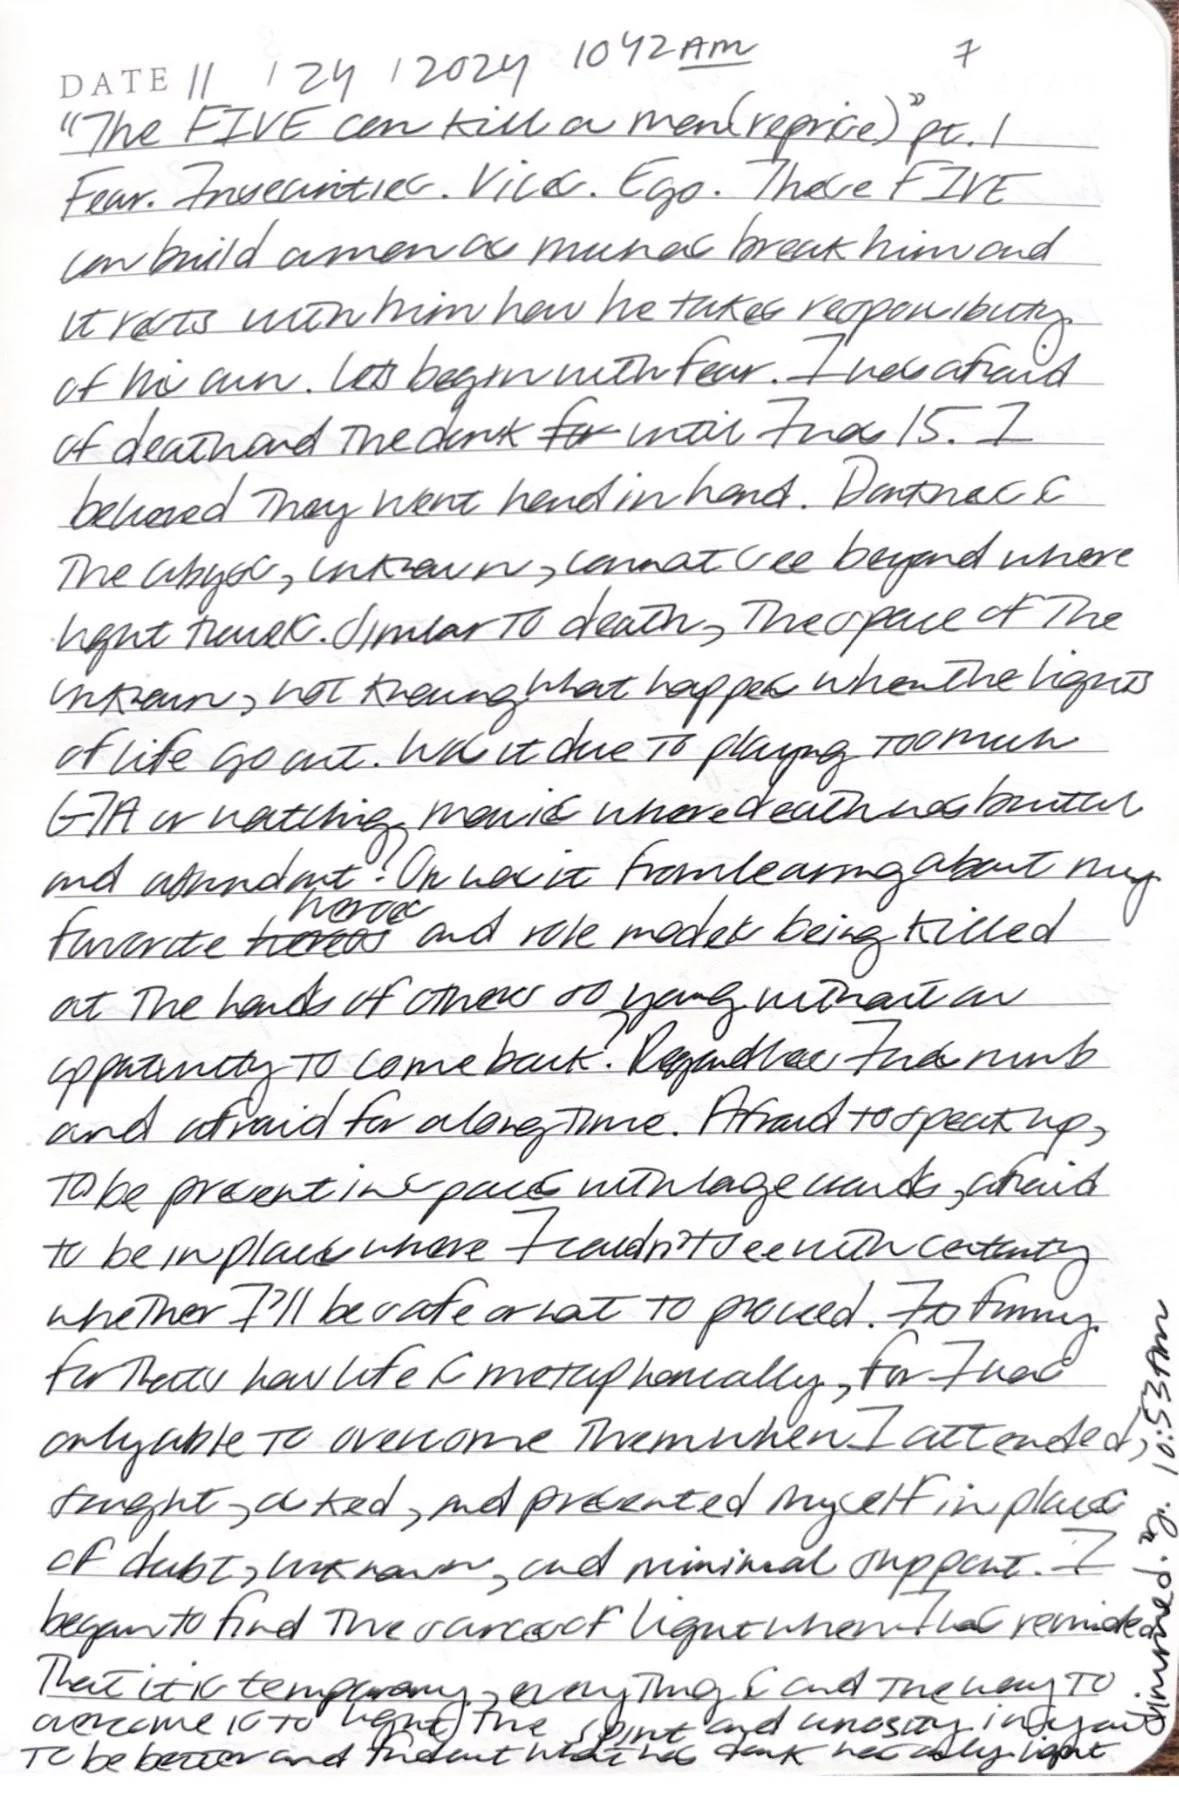 DATE 11 / 24 / 2024 1042AM 7
"The FIVE can kill a man (reprise)" pt. 1
Fear. Insecurities. Vices. Ego. These FIVE
can build a man as much as break him and
it rests with him how he takes responsibility
of his own. Lets begin with fear. I was afraid
of death and the dark for until I was 15. I
believed they went hand in hand. Darkness is
the abyss, unknown, cannot see beyond where
light travels. Similar to death, the space of the
unknown, not knowing what happes when the lights
of life go out. Was it due to playing too much
GTA or watching movies where death was brutal
and abundant? Or was it from learning about my
favorite heroes heroes and role models being killed
at the hands of others so young without an
opportunity to come back? Regardless I was numb
and afraid for a long time. Afraid to speak up,
to be present in spaces with large crowds, afraid
to be in places where I couldn't see with certainty
whether I'll be safe or not to proceed. Its funny
for thats how life is metaphorically, for I was
only able to overcome them when I attended,
fought, asked, and presented myself in places
of doubt, unknown, and minimal support. I
began to find the sources of light when I was reminded
that it is temporary, everything is and the way to
overcome is to light the spirit and curiosity in you
to be better and find out what was dark was only light
dimmed. 10:53AM